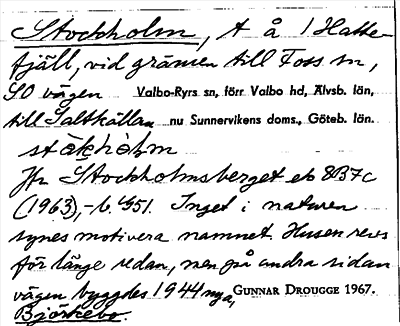 Stockholm, t å 1 Hatte-
fjäll, vid gränsen till Foss sn,
SO vägen Valbo-Ryrs sn, förr Valbo hd, Älvsb. län,
till Saltkällan nu Sunnervikens doms., Göteb. län.
stàkhòḷm
Jfr Stockholmsberget ek 8B7c
(1963), b. 451. Inget i naturen
synes motivera namnet. Husen revs
för länge sedan, men på andra sidan
vägen byggdes 1944 nya, GUNNAR DROUGGE 1967.
Björkebo.